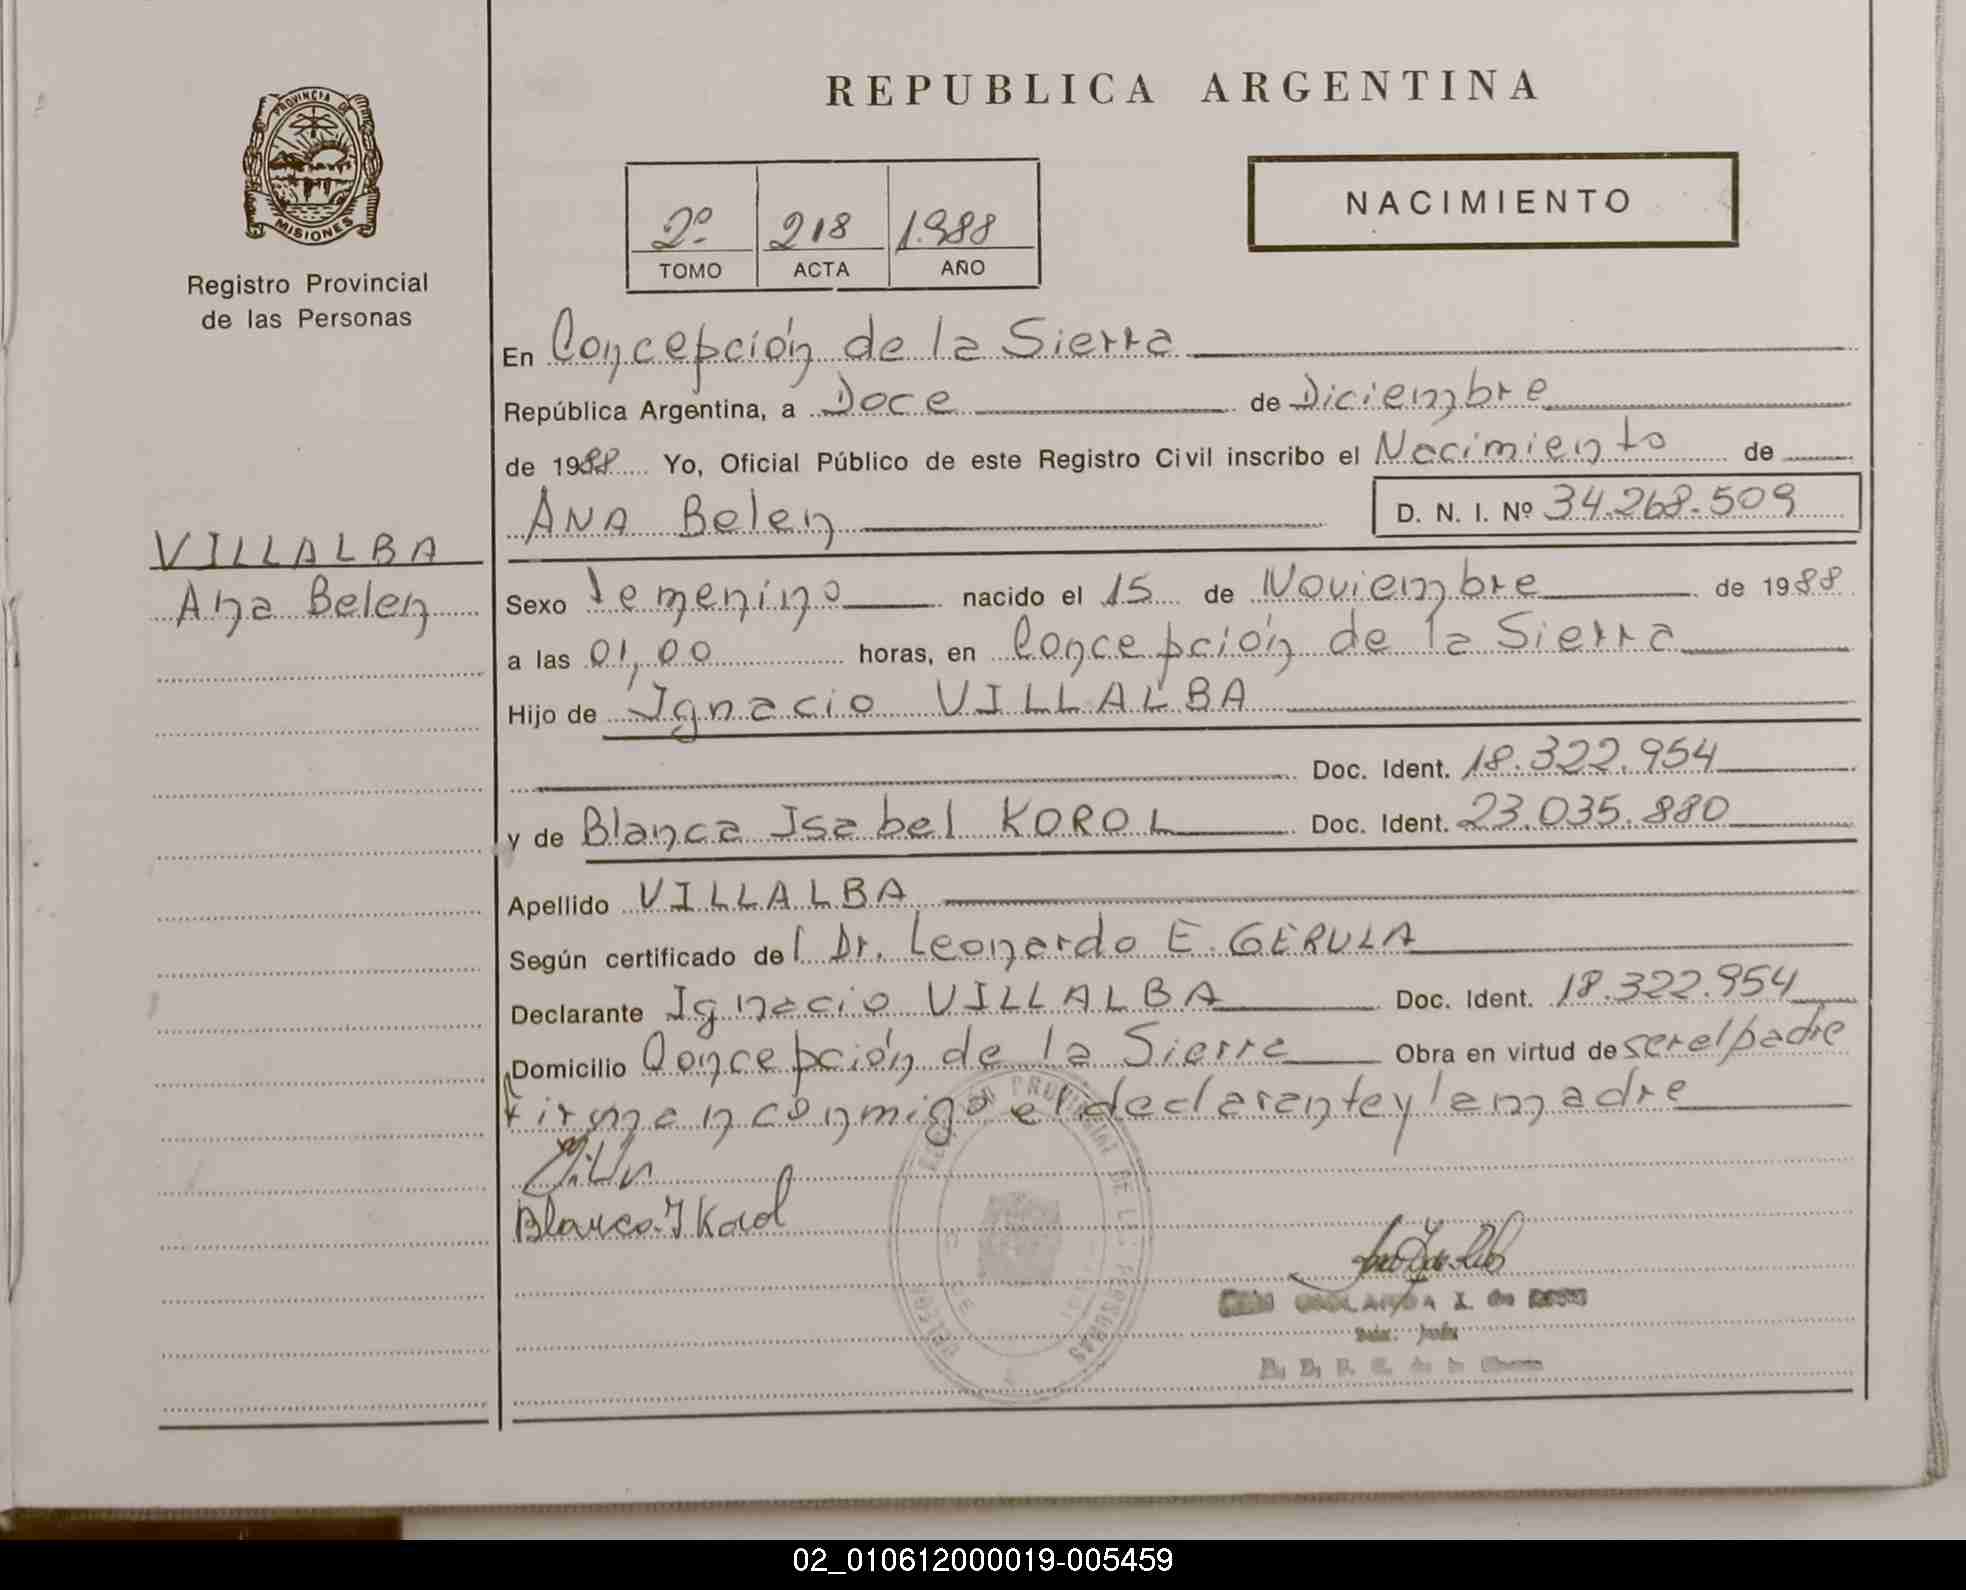 REPUBLICA ARGENTINA
PROVINCIA DE
MISIONES
Registro Provincial
de las Personas
NACIMIENTO
2º 218 1.988
TOMO ACTA AÑO
En Concepción de la Sierra
República Argentina, a Doce de Diciembre
de 1988 Yo, Oficial Público de este Registro Civil inscribo el Nacimiento de
ANA Belen D. N. I. Nº 34.268.509
VILLALBA
Ana Belen
Sexo Femenino nacido el 15 de Noviembre de 1988
a las 01,00 horas, en Concepción de la Sierra
Hijo de Ignacio VILLALBA
Doc. Ident. 18.322.954
y de Blanca Isabel KOROL Doc. Ident. 23.035.880
Apellido VILLALBA
Según certificado del Dr. Leonardo E. GERULA
Declarante Ignacio VILLALBA Doc. Ident. 18.322.954
Domicilio Concepción de la Sierra Obra en virtud de ser el padre
firman conmigo el declarante y la madre
Blanca I Korol
02_010612000019-005459